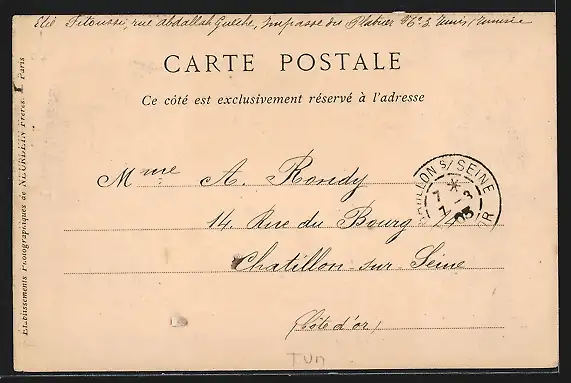 Elie Fitoussi, rue abdallah Guèche, Impasse du Plâtrier Nº 3. Tunis, Tunisie
CARTE POSTALE
Ce côté est exclusivement réservé à l'adresse
Mme A. Rondy
14. Rue du Bourg
Chatillon-sur-Seine
(Côte d'or)
CHATILLON S/ SEINE
7 *
7 - 3
03
Etablissements Photographiques de NEURDEIN Frères. Paris
Tun